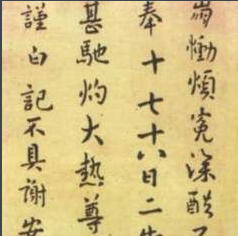 崩慟煩冤深酷
奉十七十八日二
甚馳灼大熱尊
謹白記不具謝安